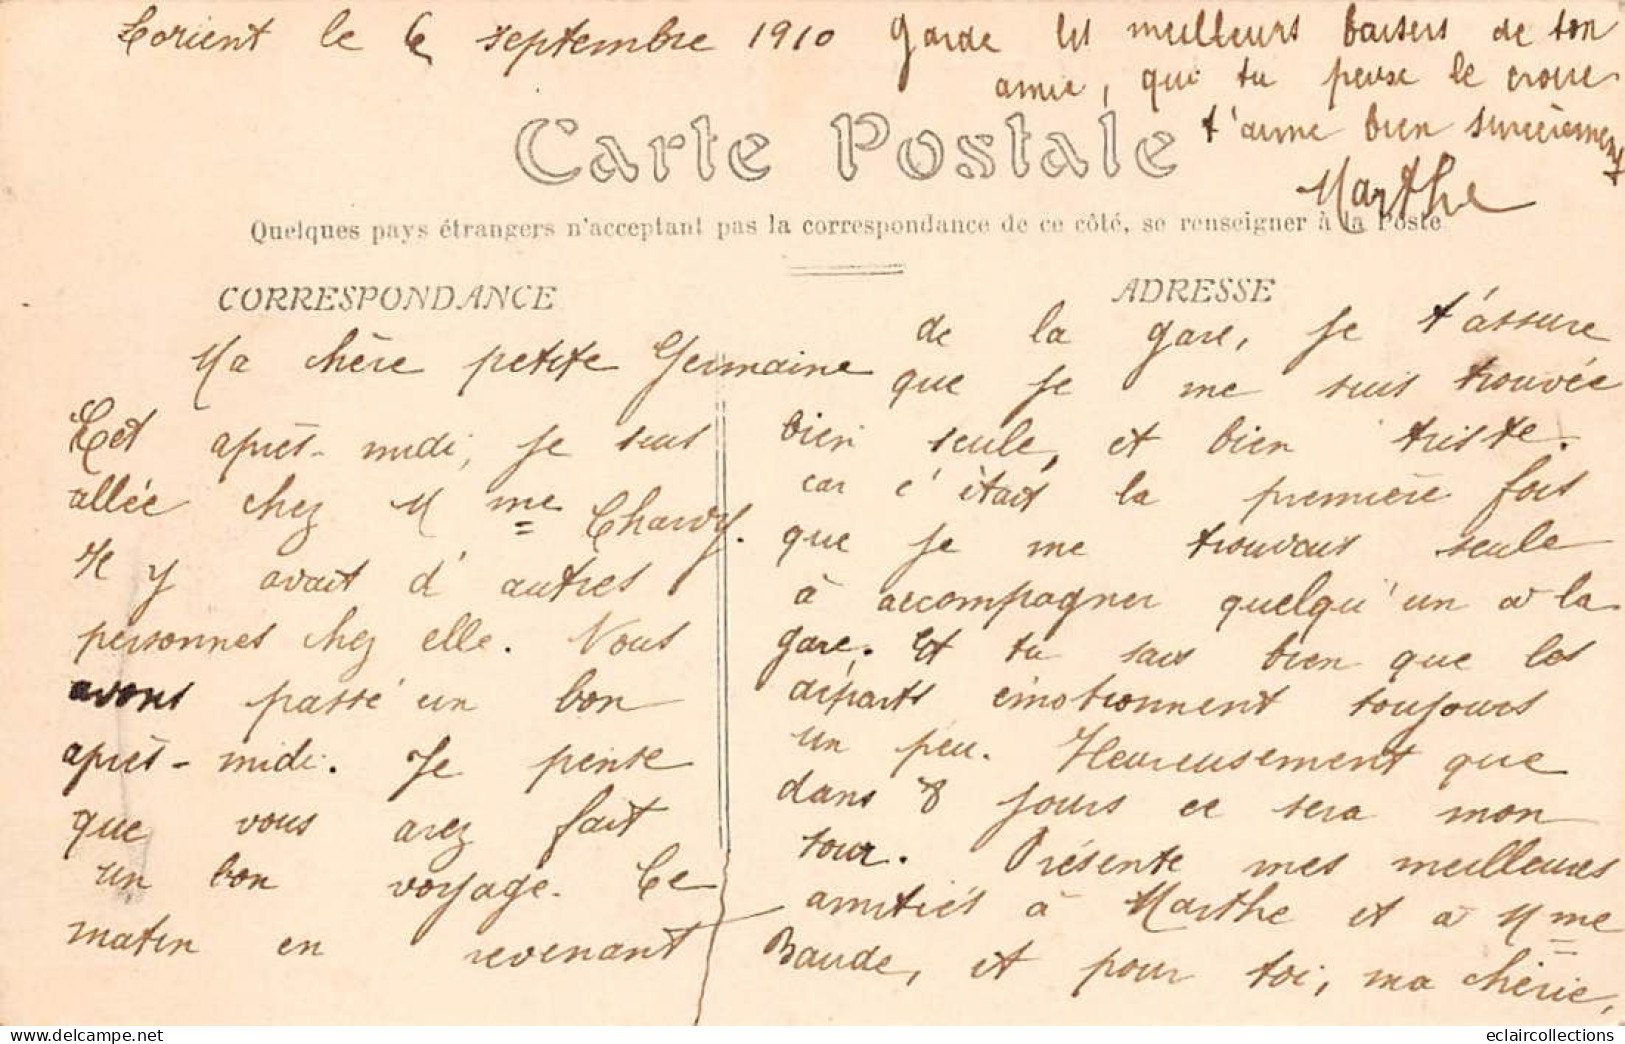 Lorient le 6 septembre 1910
Carte Postale
Quelques pays étrangers n'acceptent pas la correspondance de ce côté, se renseigner à la Poste
CORRESPONDANCE
Ma chère petite Germaine
Cet après-midi, je suis
allée chez Mme Charvy.
Il y avait d'autres
personnes chez elle. Nous
avons passé un bon
après-midi. Je pense
que vous avez fait
un bon voyage. Ce
matin en revenant
ADRESSE
de la gare, je t'assure
que je me suis trouvée
bien seule, et bien triste.
car c'était la première fois
que je me trouvais seule
à accompagner quelqu'un à la
gare. Et tu sais bien que les
départs émotionnent toujours
un peu. Heureusement que
dans 8 jours ce sera mon
tour. Présente mes meilleures
amitiés à Marthe et à Mme
Baude, et pour toi, ma chérie,
Garde les meilleurs baisers de ton
amie, qui tu peux le croire
t'aime bien sincèrement
Marthe
eclaircollections